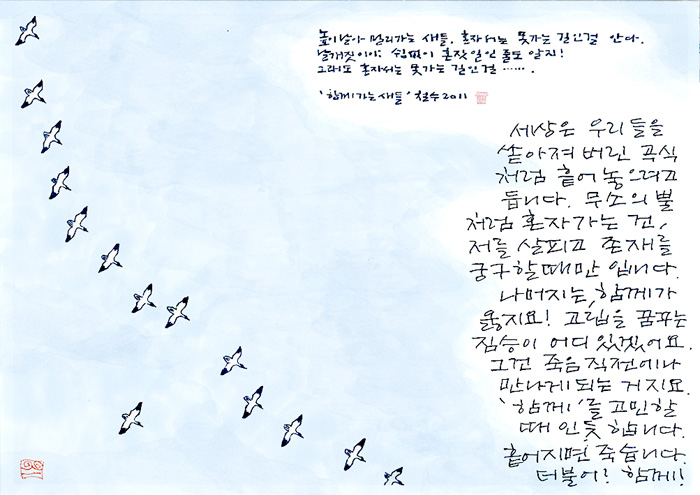 높이 날아 멀리가는 새들. 혼자서는 못가는 길인걸 안다.
날개짓이야 쉼없이 혼잣일인 줄도 알지!
그래도 혼자서는 못가는 길인걸…….
'함께 가는 새들' 철수 2011
세상은 우리들을
쏟아져 버린 곡식
처럼 흩어 놓으려고
듭니다. 무소의 뿔
처럼 혼자 가는 건,
저를 살피고 존재를
궁구할 때만 입니다.
나머지는, 함께가
옳지요! 고립을 꿈꾸는
짐승이 어디 있겠어요.
그건 죽음 직전에나
만나게 되는 거지요.
'함께'를 고민할
때 인듯 합니다.
흩어지면 죽습니다.
더불어? 함께!